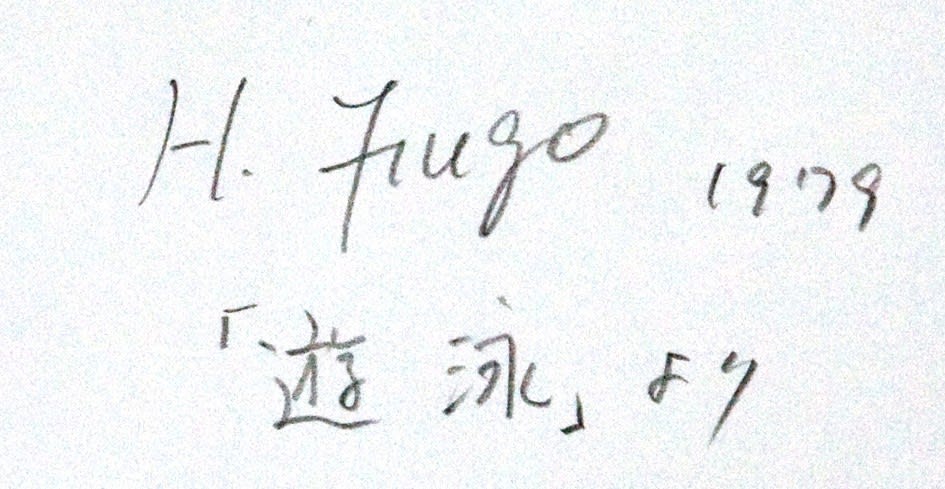 H. Fiugo 1979
「遊泳」より